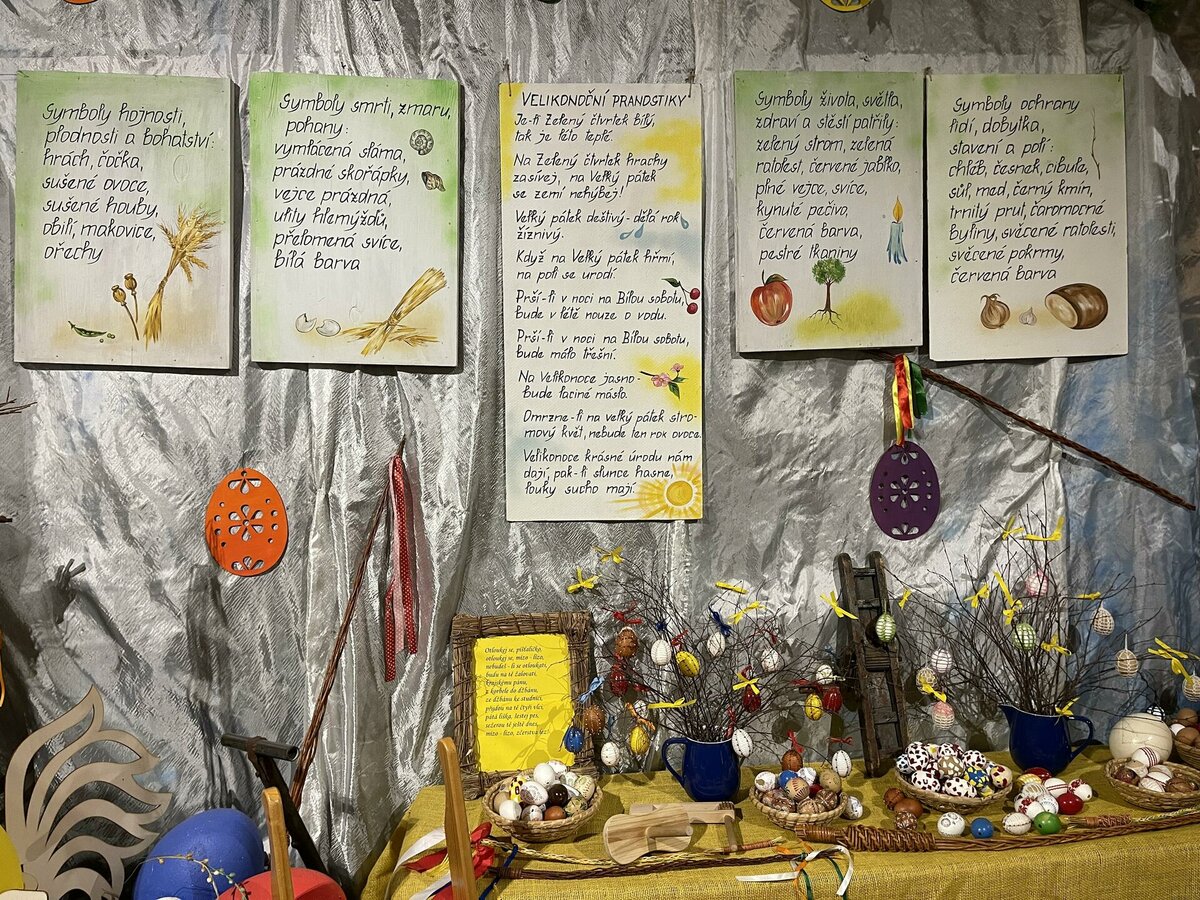 Symboly hojnosti,
plodnosti a bohatství:
hrách, čočka,
sušené ovoce,
sušené houby,
obilí, makovice,
ořechy
Symboly smrti, zmaru,
pohany:
vymlácená sláma,
prázdné skořápky,
vejce prázdná,
ulity hlemýžďů,
přelomená svíce,
bílá barva
VELIKONOČNÍ PRANOSTIKY
Je-li Zelený čtvrtek bílý,
tak je léto teplé.
Na Zelený čtvrtek hrachy
zasívej, na Velký pátek
se zemí nehýbej!
Velký pátek deštivý - dělá rok
žíznivý.
Když na Velký pátek hřmí,
na poli se urodí.
Prší-li v noci na Bílou sobotu,
bude v létě nouze o vodu.
Prší-li v noci na Bílou sobotu,
bude málo třešní.
Na Velikonoce jasno-
bude laciné máslo.
Omrzne-li na velký pátek stro-
mový květ, nebude ten rok ovoce.
Velikonoce krásné úrodu nám
dají, pak-li slunce hasne,
louky sucho mají.
Symboly života, světla,
zdraví a stěstí patřily:
zelený strom, zelená
ratolest, červené jablko,
plné vejce, svíce,
kynuté pečivo,
červená barva,
pestré tkaniny
Symboly ochrany
lidí, dobytka,
stavení a polí:
chléb, česnek, cibule,
sůl, med, černý kmín,
trnitý prut, čaromocné
byliny, svěcené ratolesti,
svěcené pokrmy,
červená barva
Otloukej se, píšťaličko,
otloukej se, mízo - lízo,
nebudeš - li se otloukati,
budu na tě žalovati,
krajskému pánu,
z korbele do džbánu,
ze džbánu ke studnici,
přijdou na tě čtyři vlci,
pátá liška, šestej pes,
sežerou tě ještě dnes,
mízo - lízo, zčerstva lez!